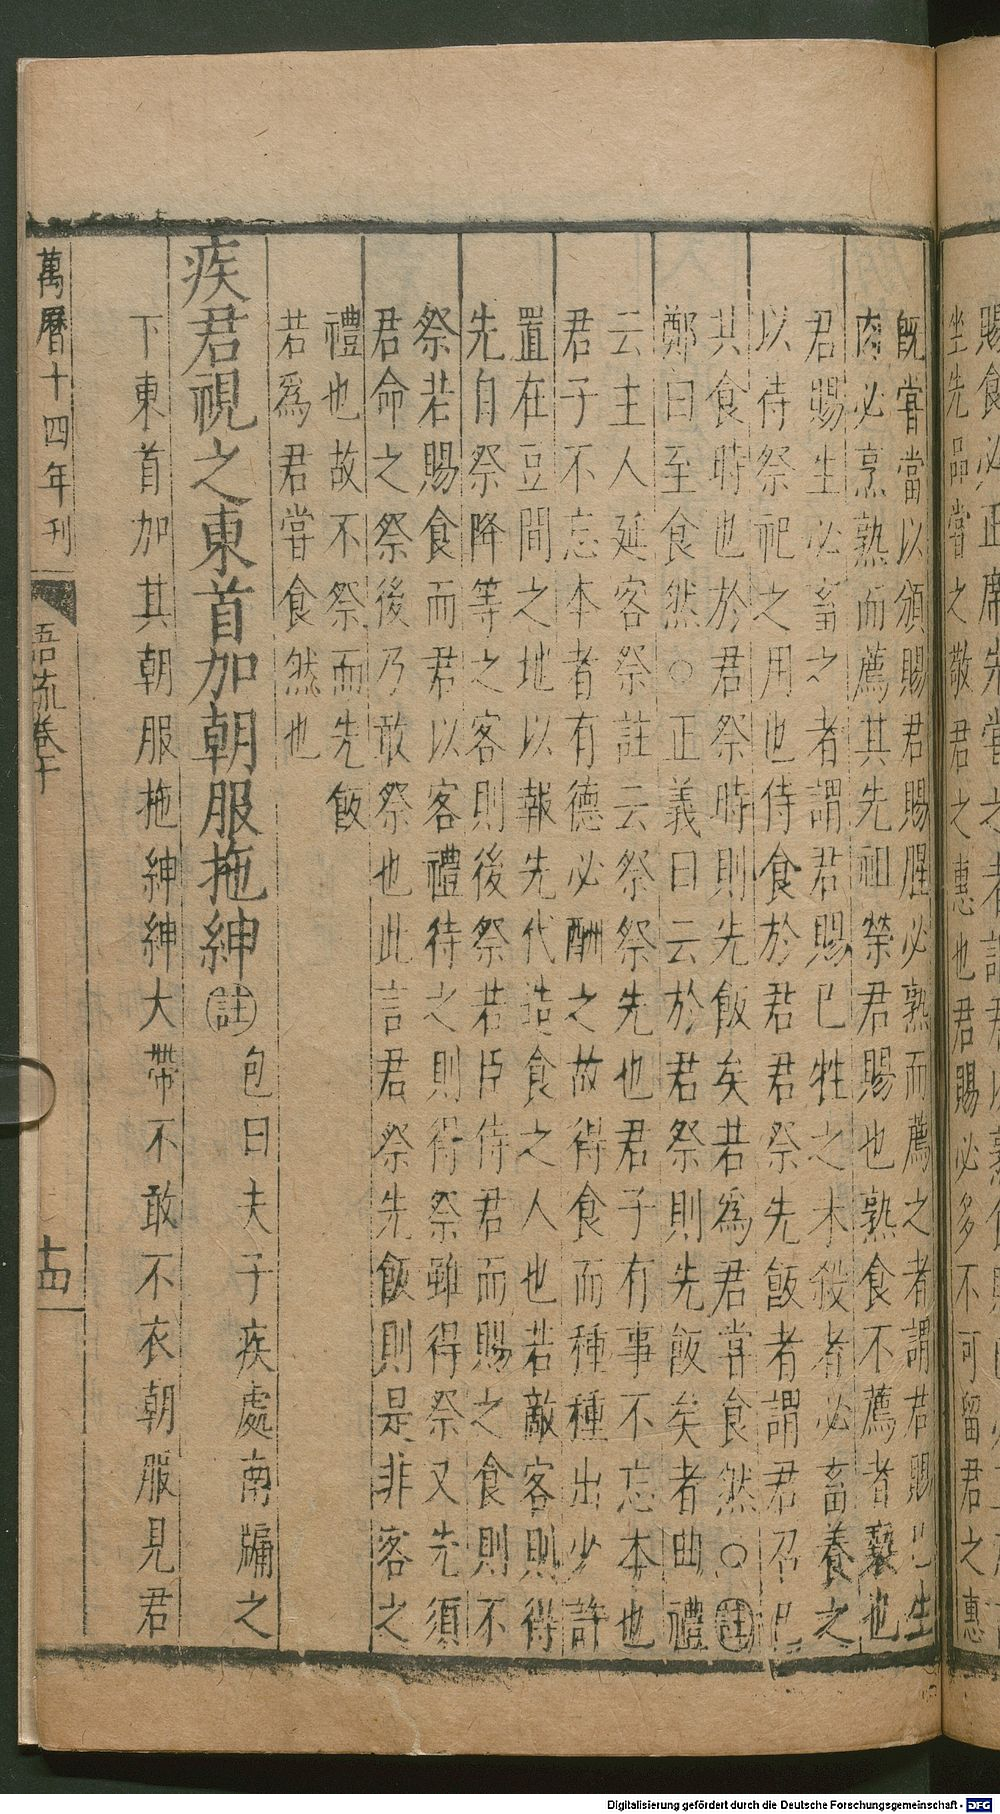 賜食必正席先嘗之者謂君以熟食賜
坐先品嘗之敬君之惠也君賜必多不可留君之惠
既嘗當以頒賜君賜腥必熟而薦之者謂君賜已生
肉必烹熟而薦其先祖榮君賜也熟食不薦者褻也
君賜生必畜之者謂君賜已牲之未殺者必畜養之
以待祭祀之用也侍食於君君祭先飯者謂君召已
共食時也於君祭時則先飯矣若為君嘗食然○註
鄭曰至食然○正義曰云於君祭則先飯矣者曲禮
云主人延客祭註云祭祭先也君子有事不忘本也
君子不忘本者有德必酬之故得食而種種出少許
置在豆間之地以報先代造食之人也若敵客則得
先自祭降等之客則後祭若臣侍君而賜之食則不
祭若賜食而君以客禮待之則得祭雖得祭又先須
君命之祭後乃敢祭也此言君祭先飯則是非客之
禮也故不祭而先飯
若為君嘗食然也
疾君視之東首加朝服拖紳註包曰夫子疾處南牖之
下東首加其朝服拖紳紳大帶不敢不衣朝服見君
萬曆十四年刊
語疏卷十
十四
Digitalisierung gefördert durch die Deutsche Forschungsgemeinschaft - DFG